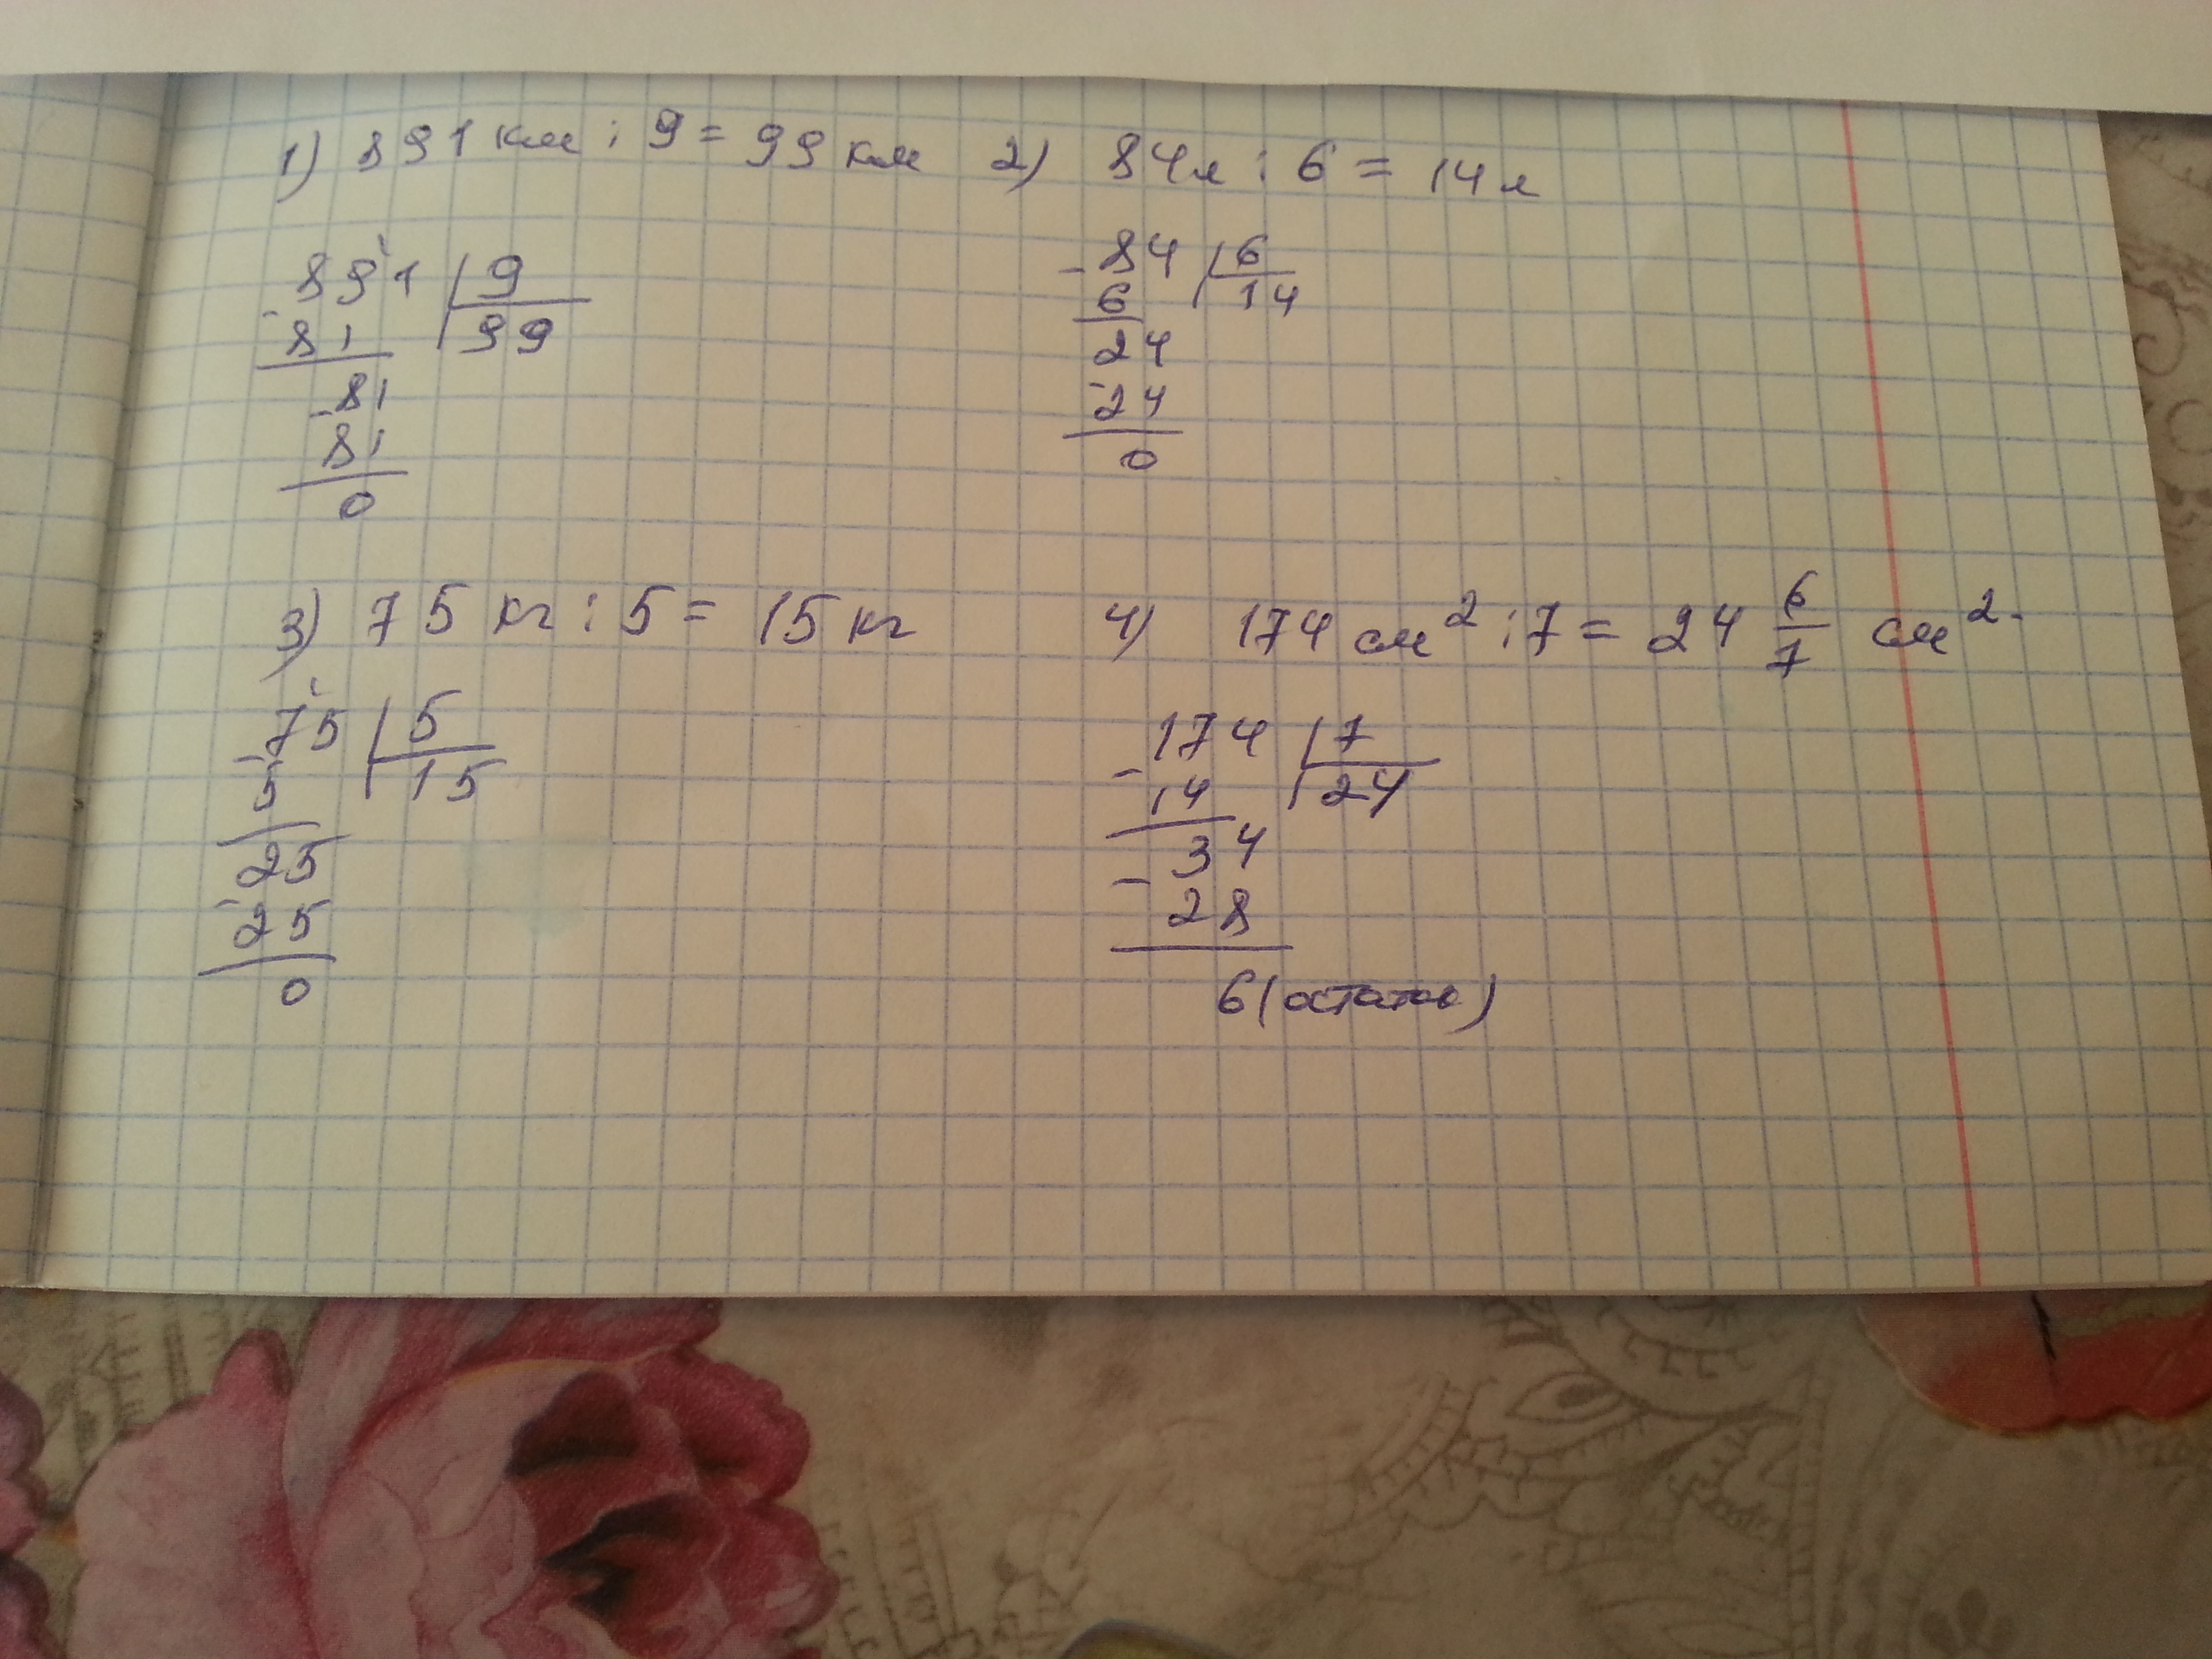 1) 891 км : 9 = 99 км
891 | 9
81 | 99
81
81
0
2) 84 л : 6 = 14 л
84 | 6
6 | 14
24
24
0
3) 75 кг : 5 = 15 кг
75 | 5
5 | 15
25
25
0
4) 174 см² : 7 = 24 6/7 см².
174 | 7
14 | 24
34
28
6 (остаток)